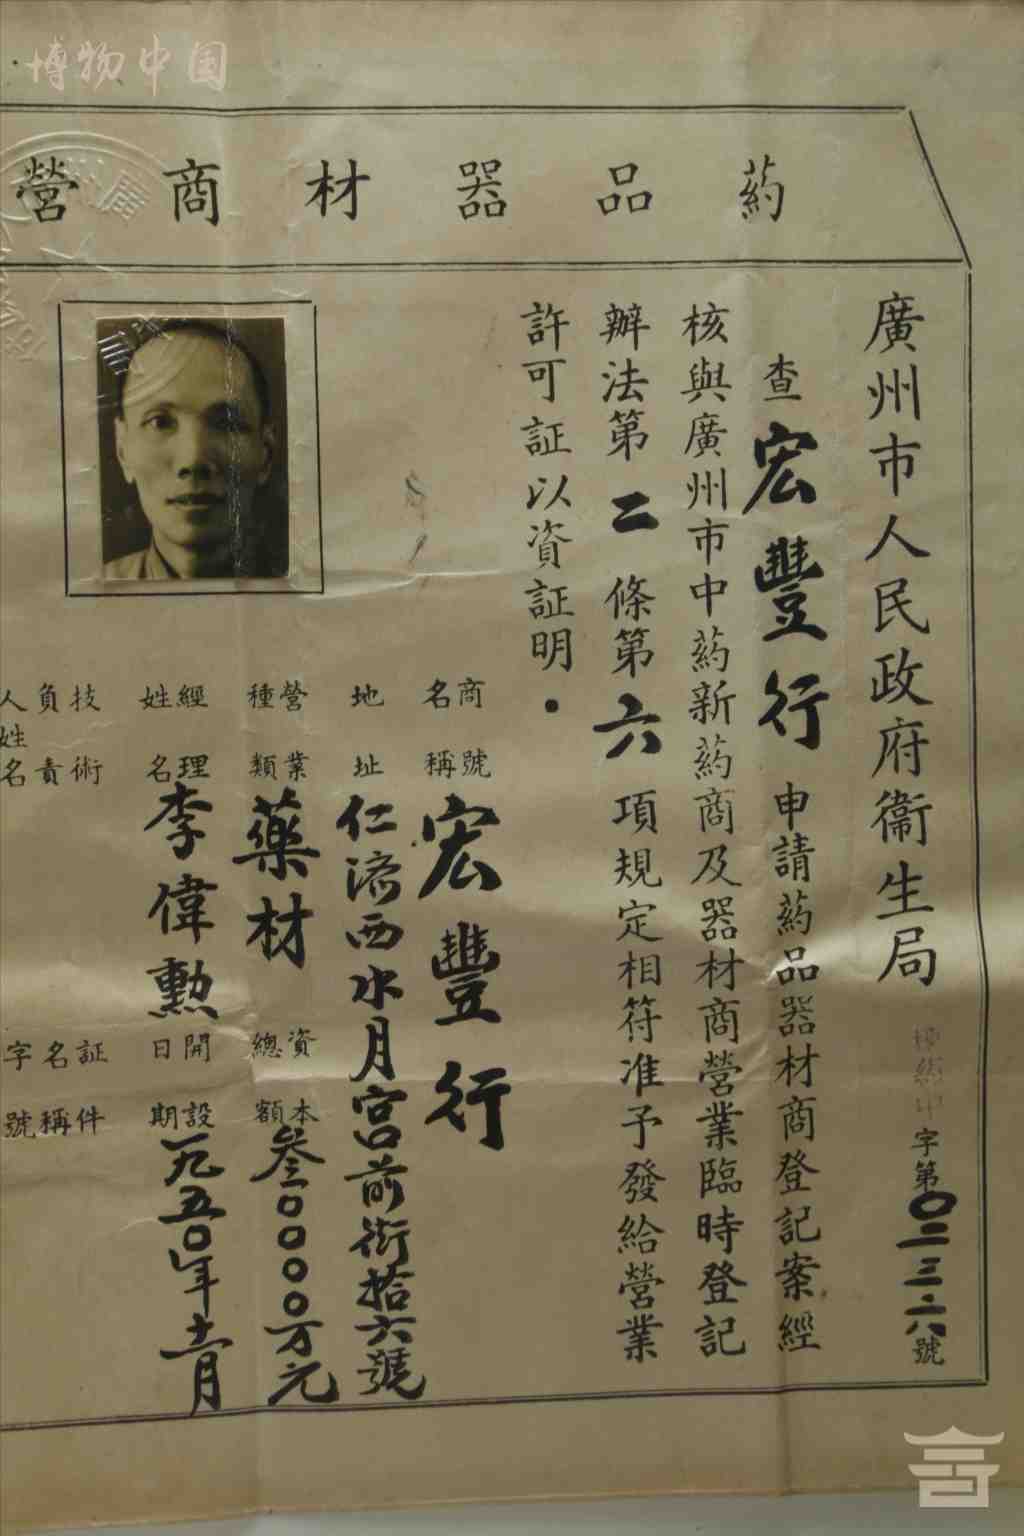 博物中国
葯品器材商營
廣州市人民政府衞生局
字第〇二三二六號
查宏豐行申請葯品器材商登記案經
核與廣州市中葯新葯商及器材商營業臨時登記
辦法第二條第六項規定相符准予發給營業
許可証以資証明．
商號名稱 宏豐行
地址 仁济西水月宮前街拾六號
營業種類 藥材
資本總額 叁〇〇〇〇万元
經理姓名 李偉勲
開設日期 一九五〇年十一月
技術負責人姓名
証件名稱字號